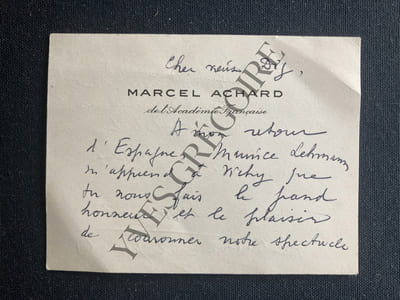 Cher
MARCEL ACHARD
de l'Académie Française
A mon retour
d'Espagne, Maurice Lehmann
m'apprend à Vichy que
tu nous fais le grand
honneur et le plaisir
de couronner notre spectacle
YVES GRÉGOIRE